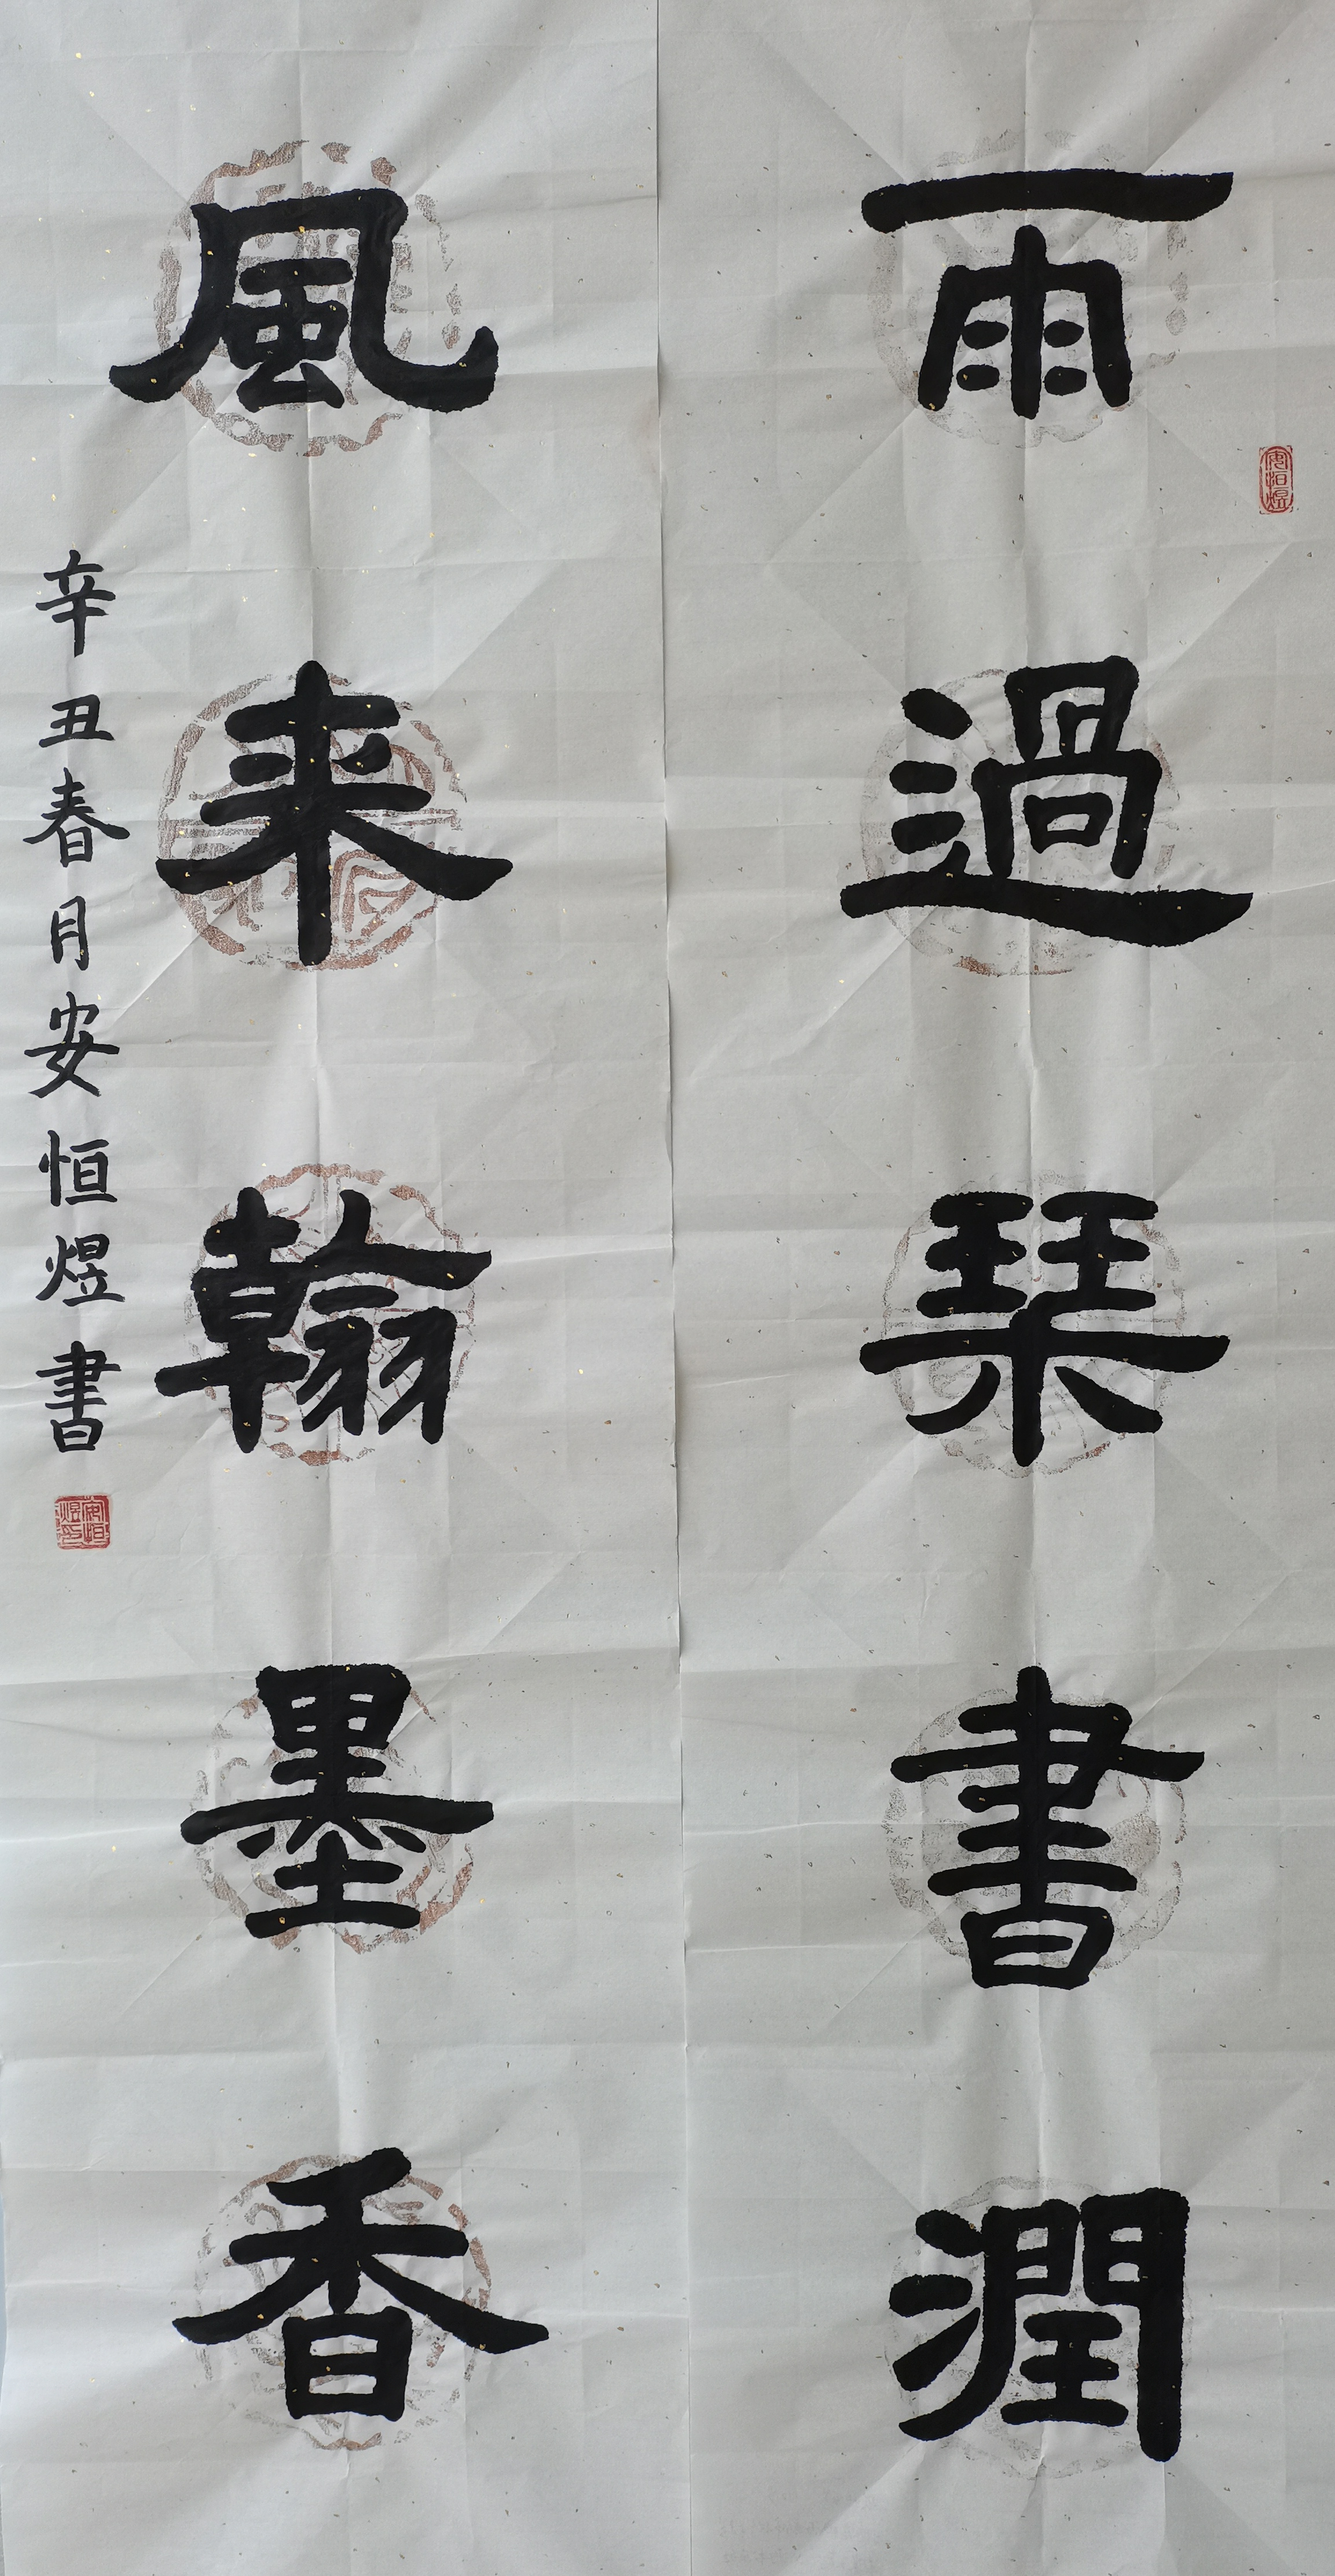 雨過琹書潤
風来翰墨香
辛丑春月安恒煜書
安恒煜
安恒煜印